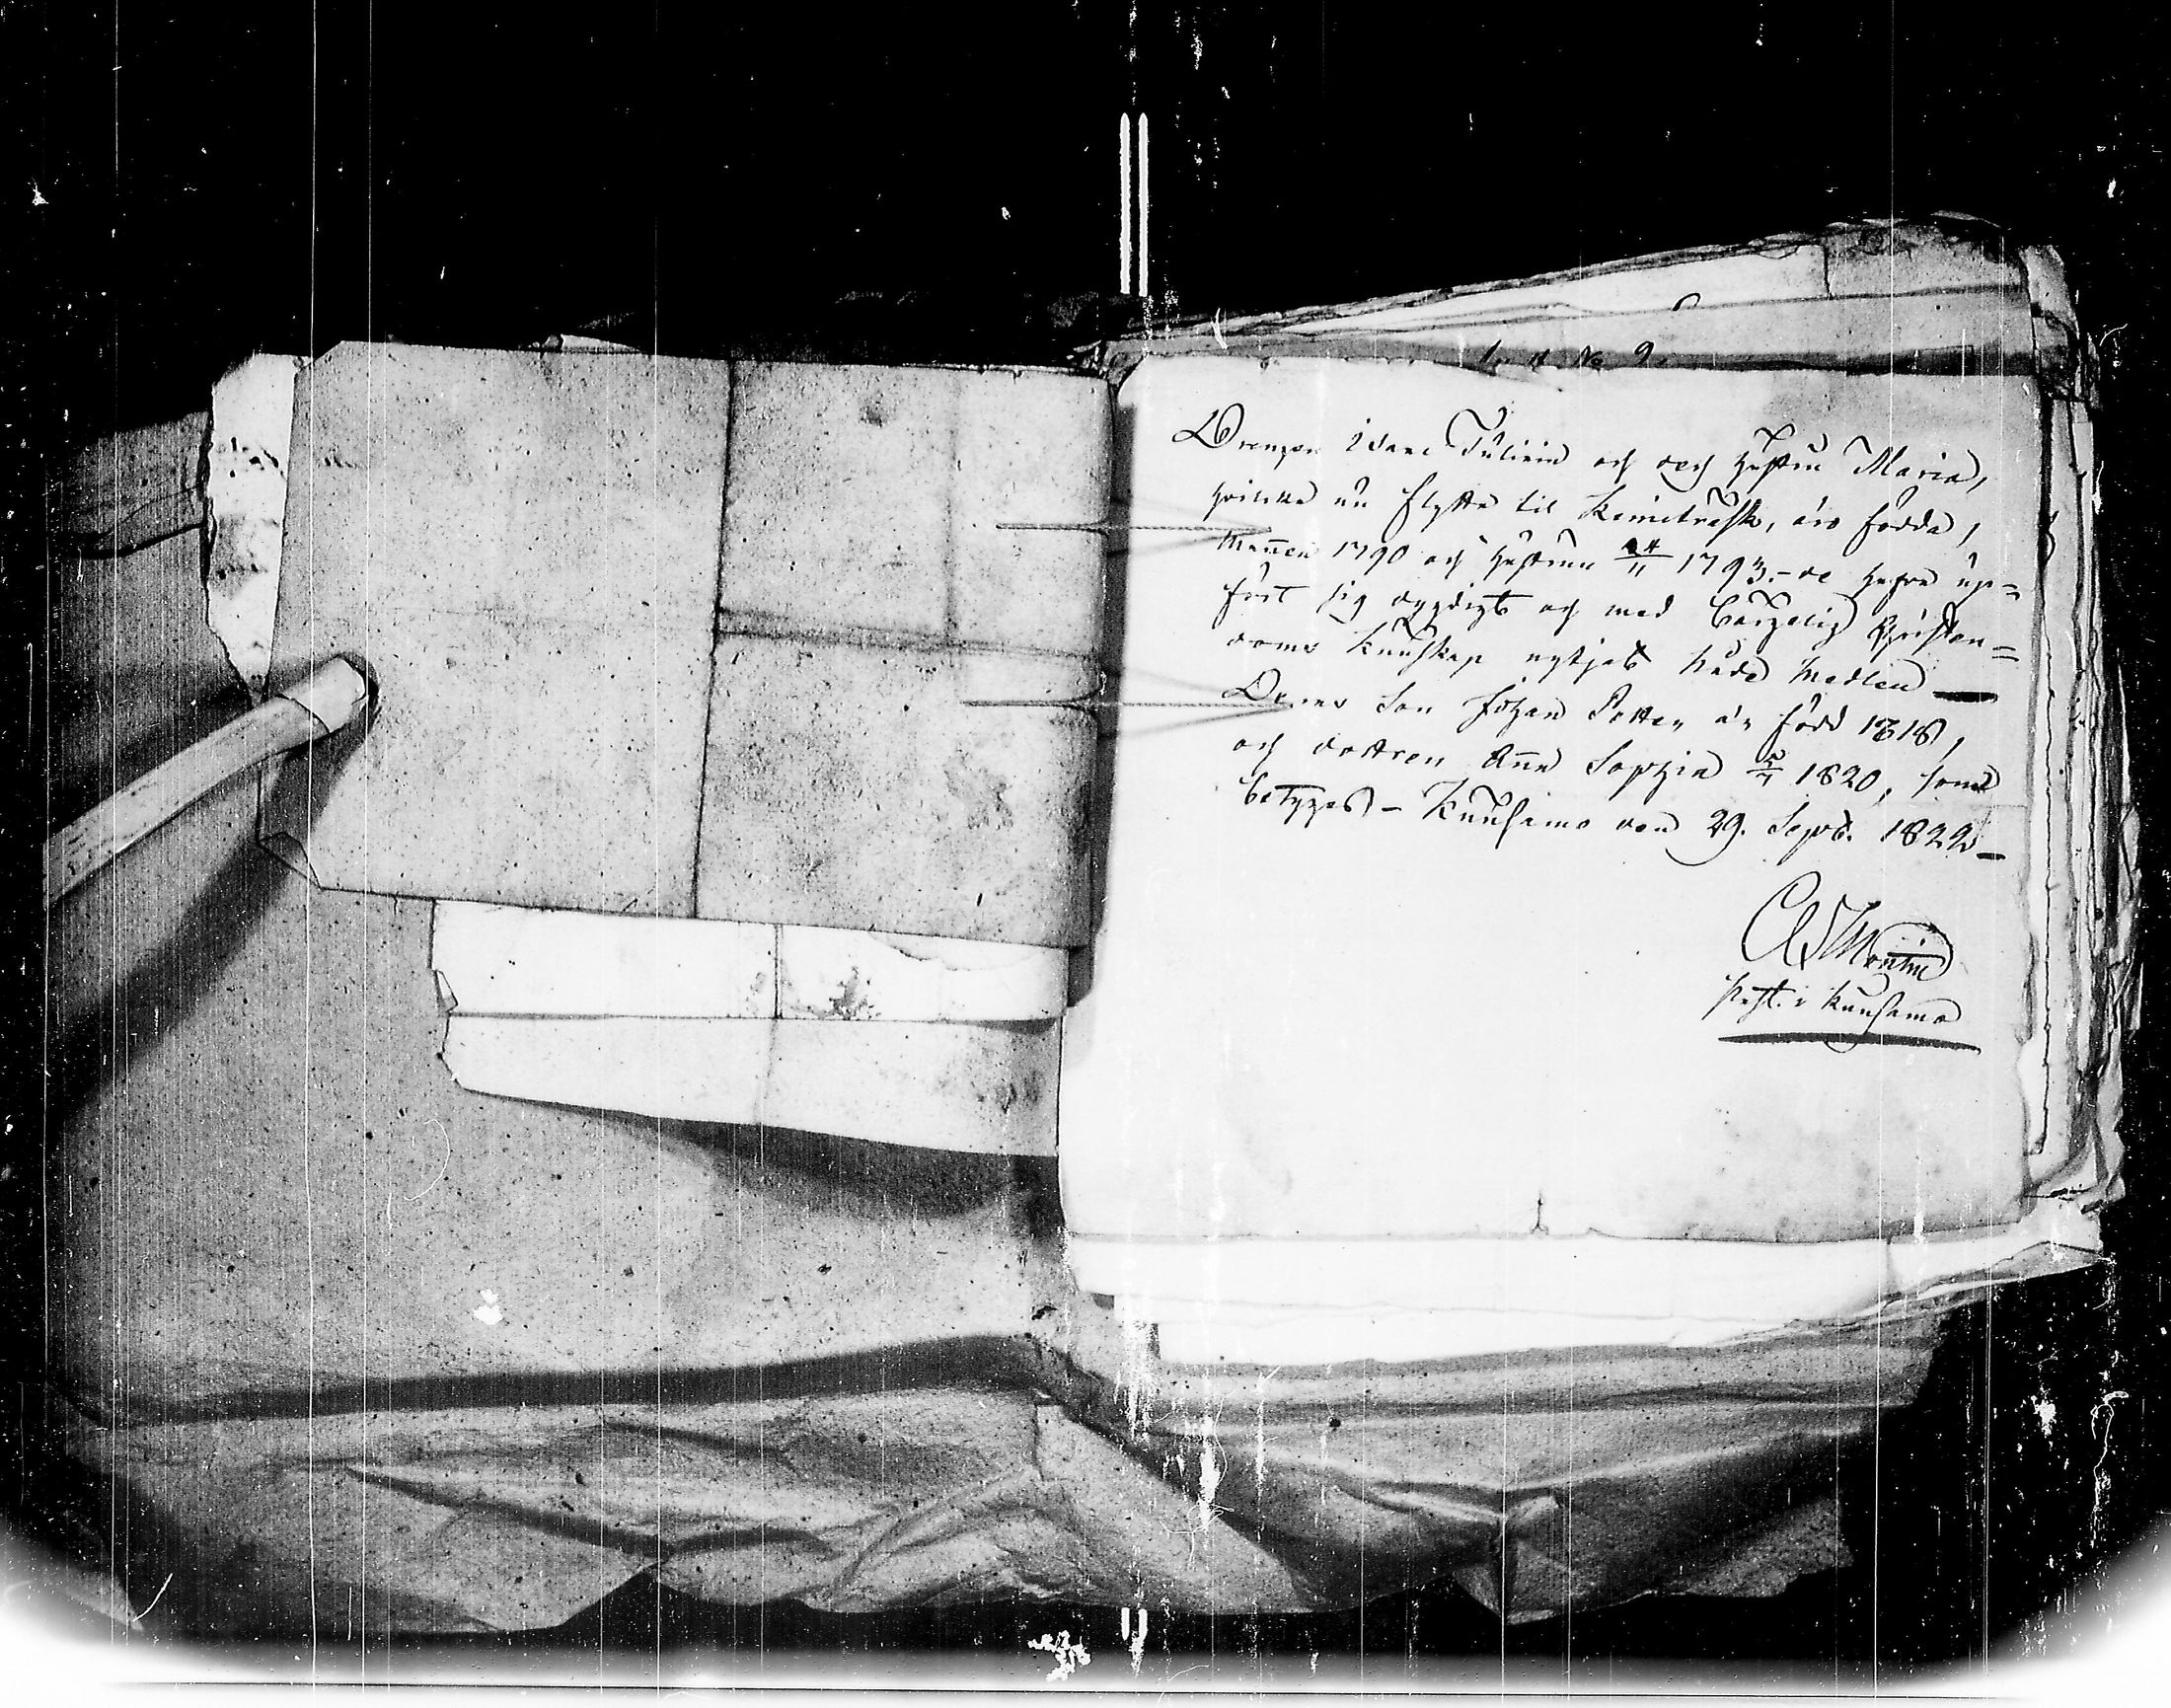 No 9
Drengen Isaac Tulinen och dess Hustru Maria,
hvilka nu flytta til Kemiträsk, äro födda,
Mannen 1790 och Hustrun 24/11 1793. – de hafva up=
fört sig dygdigt och med behörig Christen=
doms kunskap nytjat Nådemedlen —
Deras Son Johan Petter är född 1818,
och dottren Anna Sophia 1820, som
betygas – Kuusamo den 29. Sept. 1822 –
past. i Kuusamo